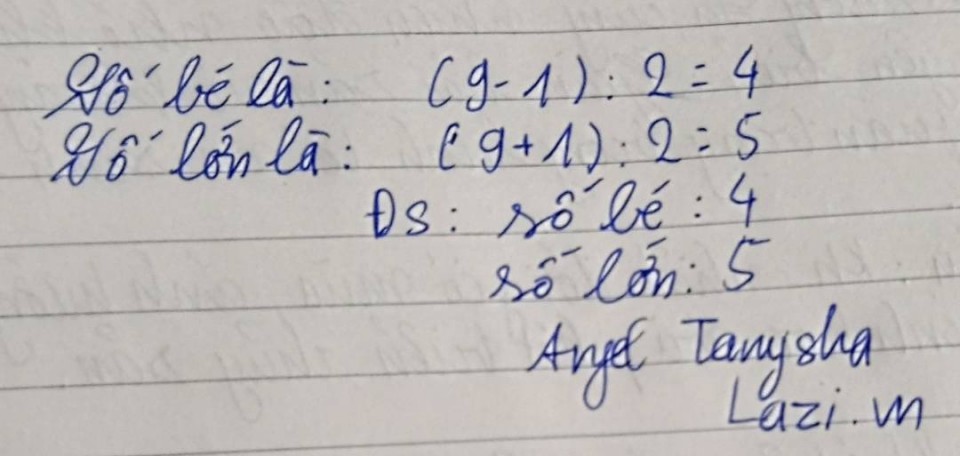 Số bé là: (9-1):2=4
Số lớn là: (9+1):2=5
ĐS: số bé: 4
số lớn: 5
Angel Tanysha
Lazi.vn